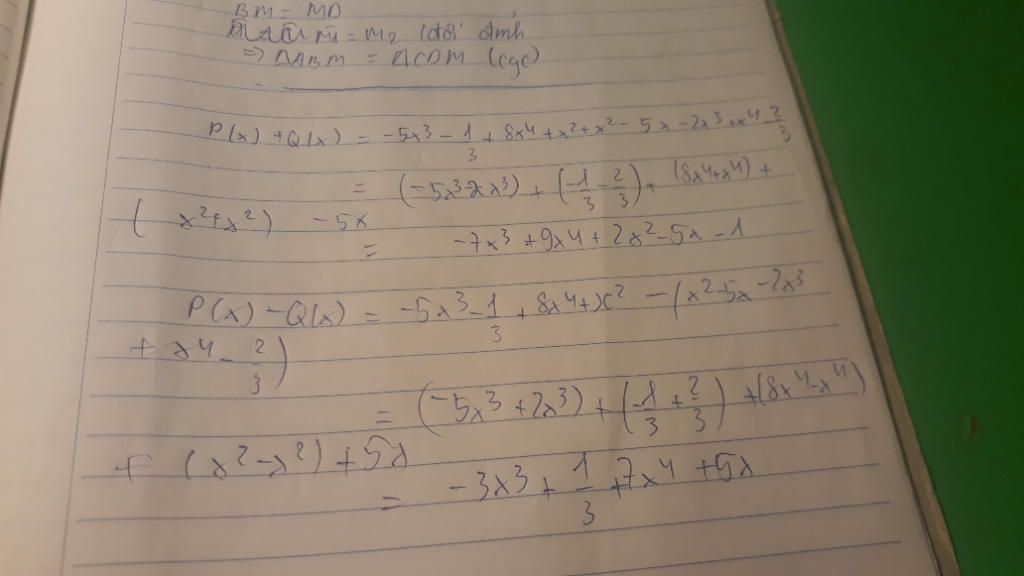 BM = MD
M1 = M2 (đối đỉnh
=> ΔABM = ΔCDM (cgc)
P(x) + Q(x) = -5x³ - 1/3 + 8x⁴ + x² + x² - 5x - 2x³ + x⁴ - 2/3
= (-5x³ - 2x³) + (-1/3 - 2/3) + (8x⁴ + x⁴) +
( x² + x² ) - 5x
= -7x³ + 9x⁴ + 2x² - 5x - 1
P(x) - Q(x) = -5x³ - 1/3 + 8x⁴ + x² - (x² - 5x - 2x³
+ x⁴ - 2/3)
= (-5x³ + 2x³) + (-1/3 + 2/3) + (8x⁴ - x⁴)
+ (x² - x²) + 5x
= -3x³ + 1/3 + 7x⁴ + 5x